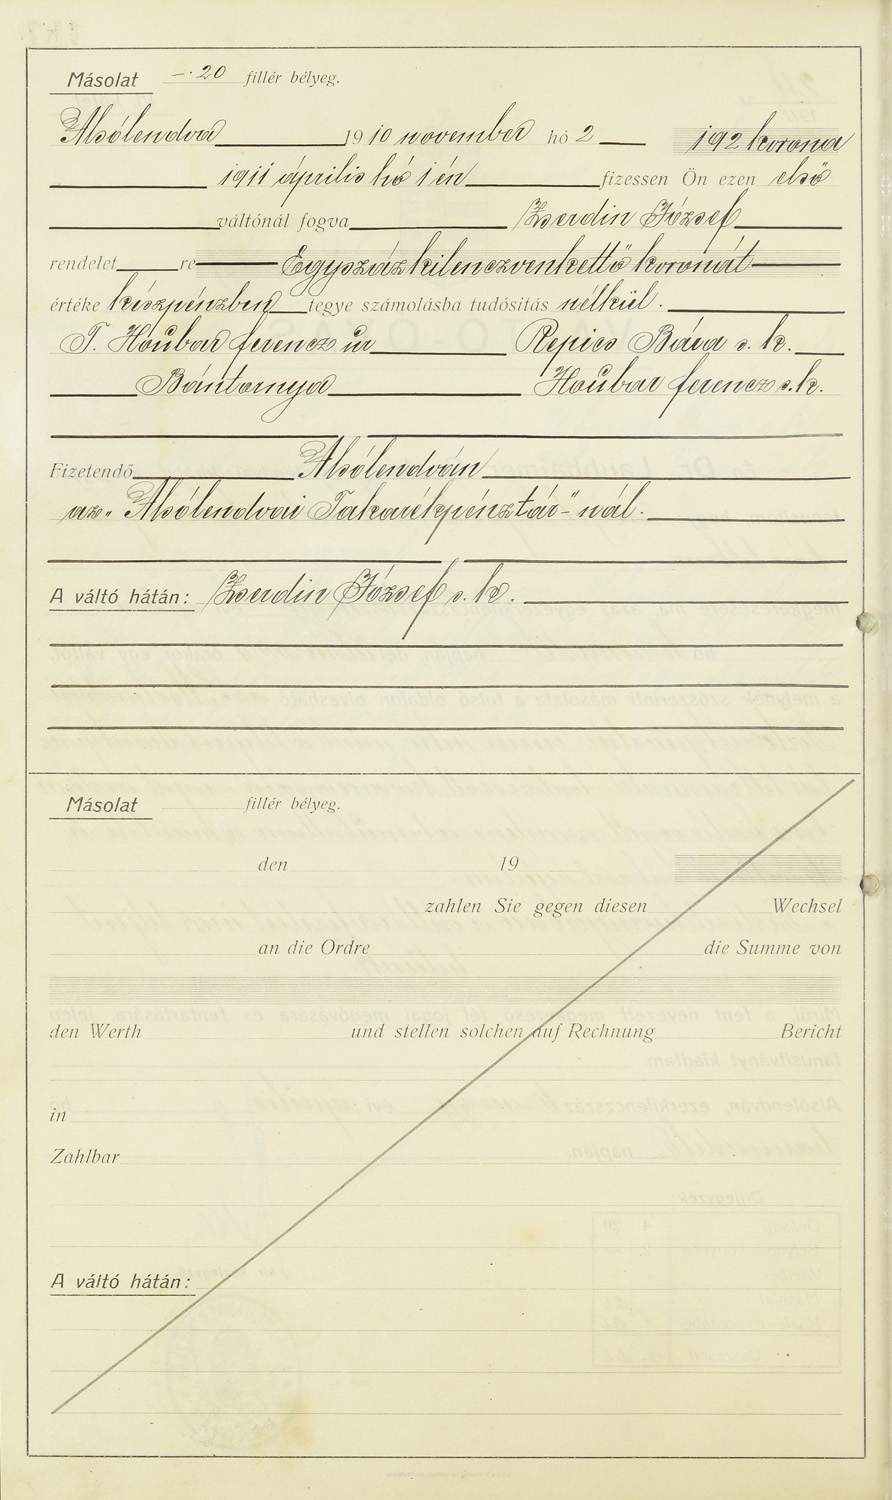 Másolat —·20 fillér bélyeg.
Alsólendva 1910 november hó 2 192 korona
1911 április hó 1 én fizessen Ön ezen első
váltónál fogva Zserdin József
rendelet re Egyszázkilenczvenkettő koronát
értéke készpénzben tegye számolásba tudósítás nélkül.
T. Houbar ferencz úr Repics Bára s. k.
Bántornya Houbar ferencz s. k.
Fizetendő Alsólendván
az „Alsólendvai Takarékpénztár"-nál.
A váltó hátán: Zserdin József s. k.
Másolat fillér bélyeg.
den 19
zahlen Sie gegen diesen Wechsel
an die Ordre die Summe von
den Werth und stellen solchen auf Rechnung Bericht
in
Zahlbar
A váltó hátán: